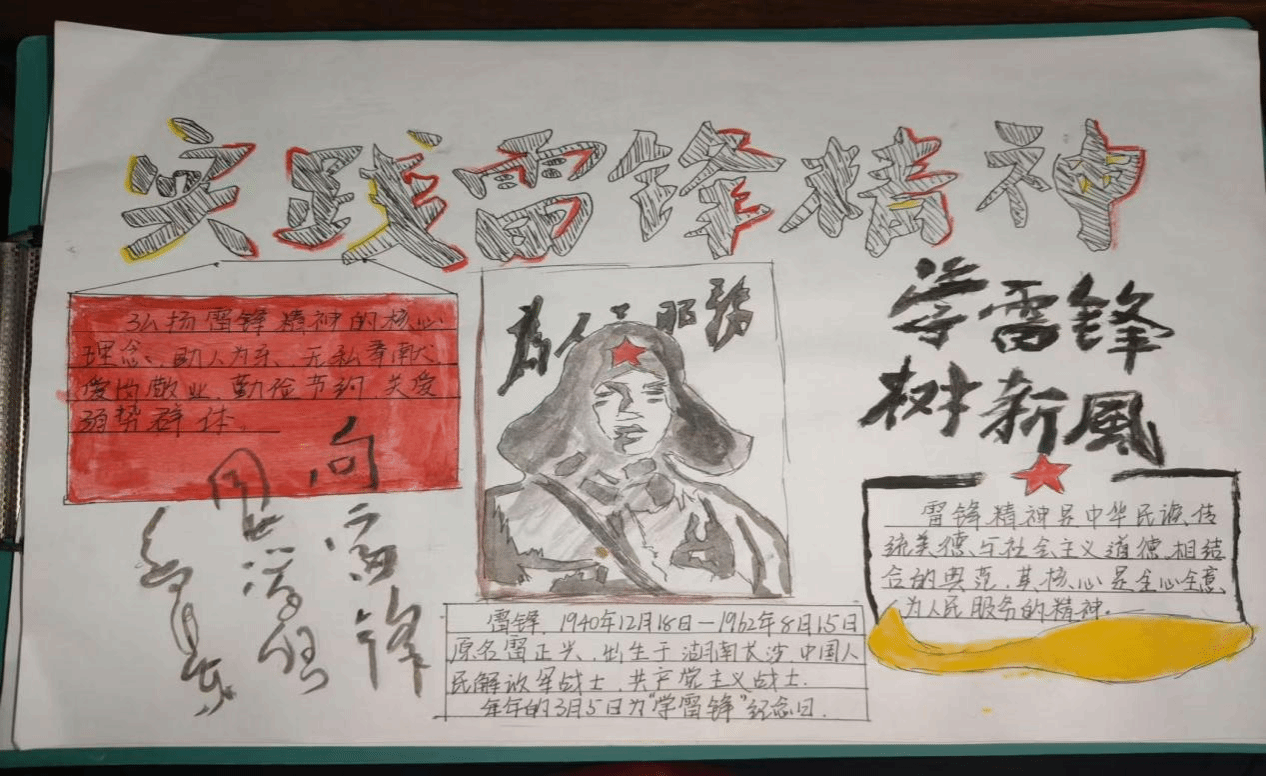 实践雷锋精神
弘扬雷锋精神的核心
理念、助人为乐、无私奉献、
爱岗敬业、勤俭节约、关爱
弱势群体。
向雷锋
同志学习
毛泽东
为人民服务
雷锋,1940年12月18日—1962年8月15日
原名雷正兴,出生于湖南长沙,中国人
民解放军战士,共产党主义战士.
年年的3月5日为“学雷锋”纪念日.
学雷锋
树新風
雷锋精神是中华民族传
统美德与社会主义道德相结
合的典范,其核心是全心全意
为人民服务的精神.